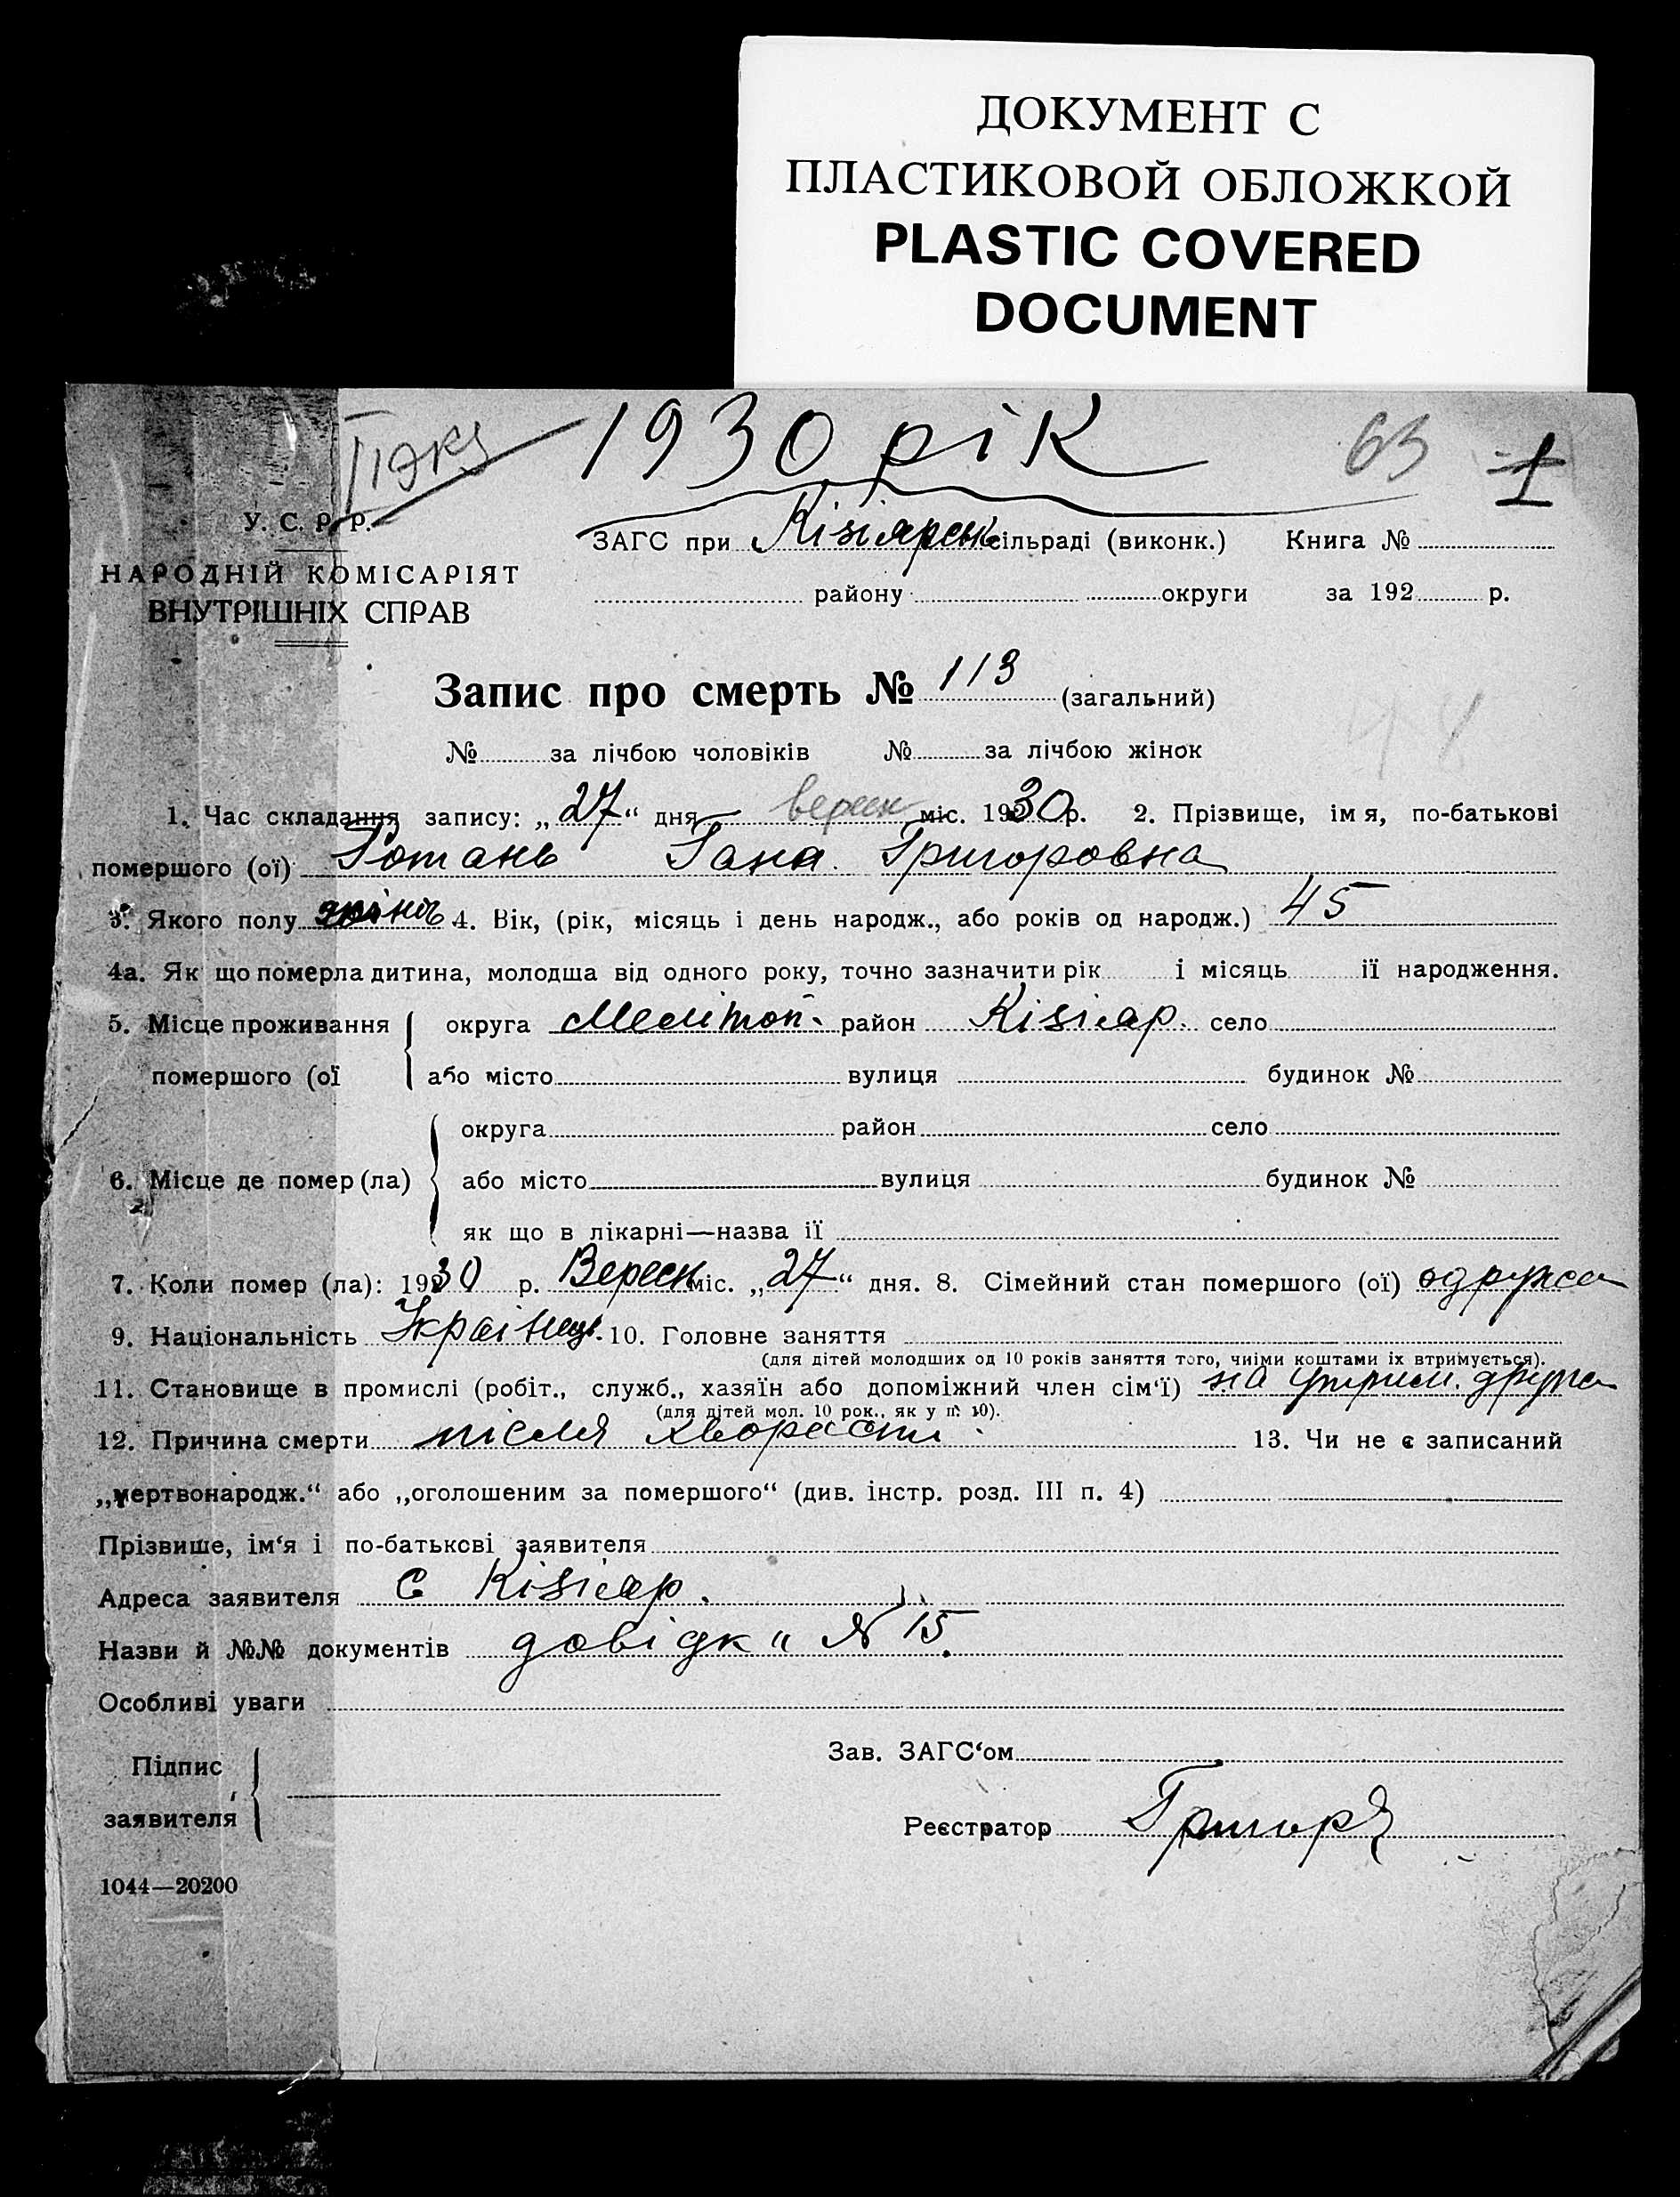 ДОКУМЕНТ С
ПЛАСТИКОВОЙ ОБЛОЖКОЙ
PLASTIC COVERED
DOCUMENT
1930 рік 63 1
У. С. Р. Р.
НАРОДНІЙ КОМІСАРІЯТ
ВНУТРІШНІХ СПРАВ
ЗАГС при Кізіярськ сільраді (виконк.) Книга №
району округи за 192 р.
Запис про смерть № 113 (загальний)
№ за лічбою чоловіків № за лічбою жінок
1. Час складання запису: „27“ дня вересн міс. 1930 р. 2. Прізвище, імя, по-батькові
помершого (ої) Готань Гана Григоровна
3. Якого полу жіноч 4. Вік, (рік, місяць і день народж., або років од народж.) 45
4а. Як що померла дитина, молодша від одного року, точно зазначити рік і місяць її народження.
5. Місце проживання округа Меліт район Кізіяр. село
помершого (ої або місто вулиця будинок №
округа район село
6. Місце де помер (ла) або місто вулиця будинок №
як що в лікарні—назва її
7. Коли помер (ла): 1930 р. Вересн міс. „27“ дня. 8. Сімейний стан помершого (ої) одружа
9. Національність 10. Головне заняття
(для дітей молодших од 10 років заняття того, чиїми коштами їх втримується).
11. Становище в промислі (робіт., служб., хазяїн або допоміжний член сім‘ї) на утрим.
(для дітей мол. 10 рок., як у п. 10).
12. Причина смерти після хворости 13. Чи не є записаний
„мертвонародж.“ або „оголошеним за помершого“ (див. інстр. розд. III п. 4)
Прізвише, ім‘я і по-батькові заявителя
Адреса заявителя с Кізіяр.
Назви й №№ документів довідк № 15.
Особливі уваги
Зав. ЗАГС‘ом
Підпис
заявителя
Реєстратор
1044—20200